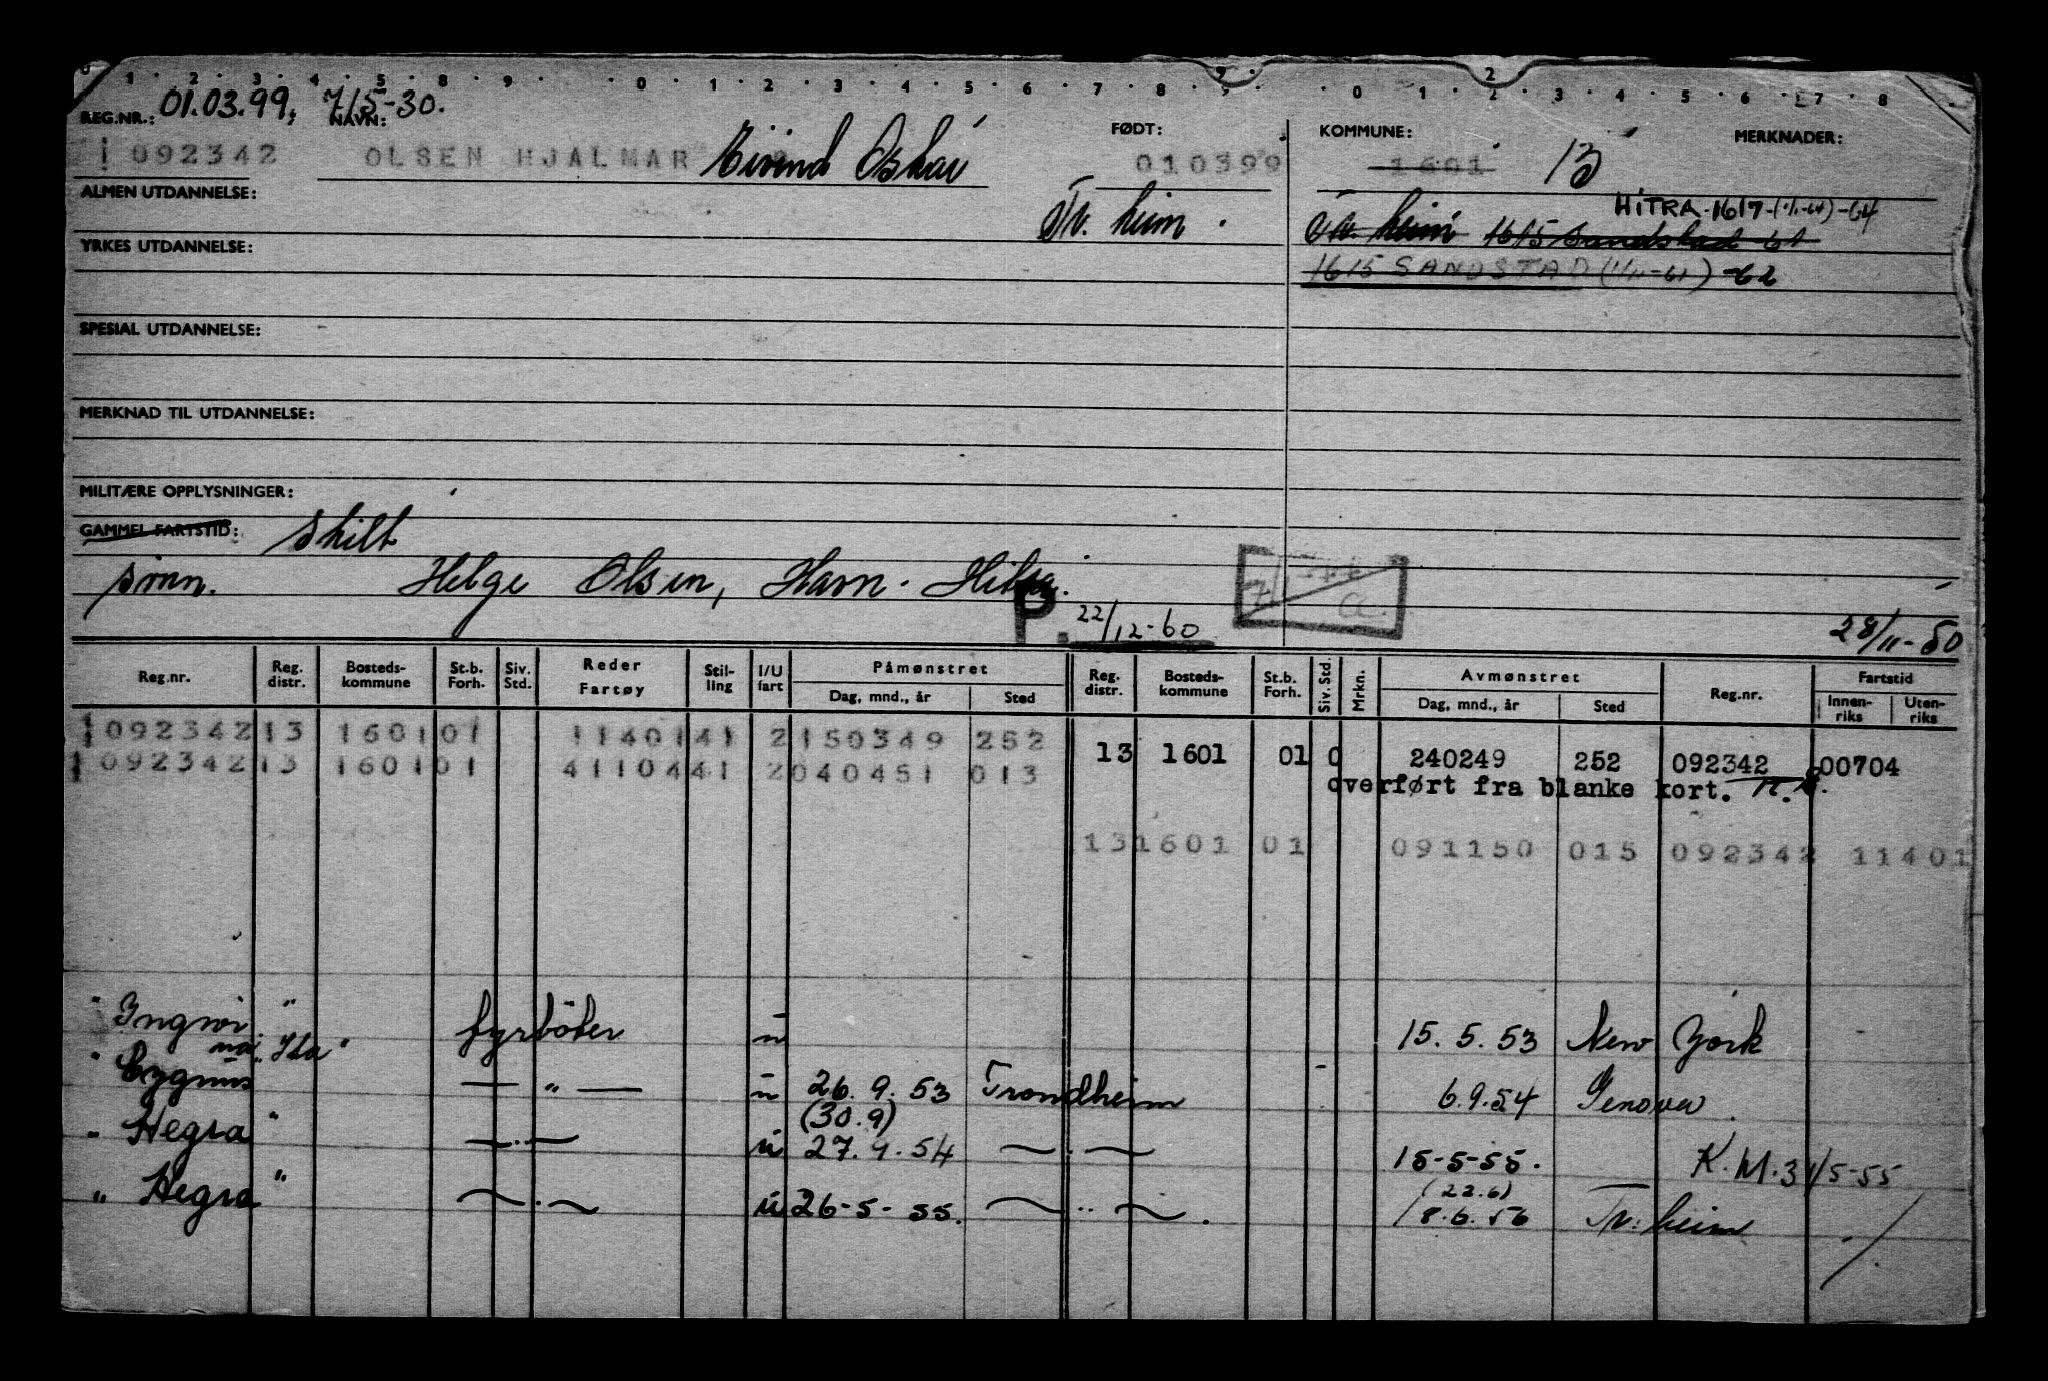 1 2 3 4 5 8 9 0 1 2 3 4 5 6 7 8 9 0 1 2 3 4 5 6 7 8
REG.NR.: 01.03.99, NAVN: 7/5-30. FØDT: KOMMUNE: MERKNADER:
092342 OLSEN HJALMAR Eivind Oskar 010399 1601 13
ALMEN UTDANNELSE: HITRA-1617-(1/1-64)-64
Tr.heim. Tr.heim 1615 Sandstad 61
YRKES UTDANNELSE:
1615 SANDSTAD (1/11-61) -62
SPESIAL UTDANNELSE:
MERKNAD TIL UTDANNELSE:
MILITÆRE OPPLYSNINGER:
GAMMEL FARTSTID: skilt
sønn. Helge Olsen, Havn. Hitra.
P. 22/12-60
28/11-50
Reg.nr. Reg. distr. Bosteds-kommune St.b. Forh. Siv. Std. Reder Fartøy Stil-ling I/U fart Påmønstret Dag, mnd., år Sted Reg. distr. Bosteds-kommune St.b. Forh. Siv. Std. Mrkn. Avmønstret Dag, mnd., år Sted Reg.nr. Fartstid Innen-riks Uten-riks
092342 13 1601 01 1140141 2 150349 252 13 1601 01 0 240249 252 092342 00704
092342 13 1601 01 4110441 2 040451 013 overført fra blanke kort.
13 1601 01 091150 015 092342 11401
" Ingwi " fyrbøter u 15.5.53 New York
" Cygnus " — " — u 26.9.53 Trondheim 6.9.54 Genova
(30.9)
" Hegra " — " — u 27.9.54 — " — 15-5-55. K.M.31/5-55
(22.6)
" Hegra " — " — u 26-5-55. — " — . 18.6.56 Tr.heim